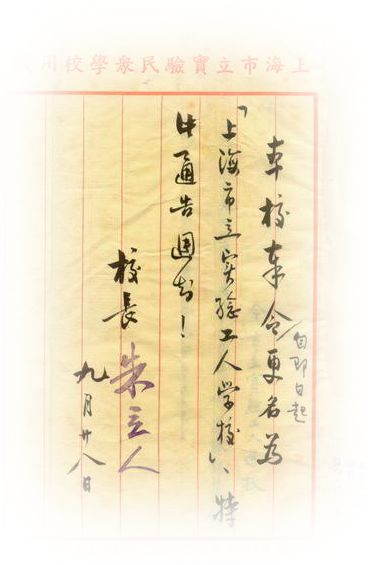 上海市立實驗民衆學校用
本校奉令自即日起更名為
「上海市立实验工人学校」，特
此通告週知！
校長 朱立人
九月廿八日